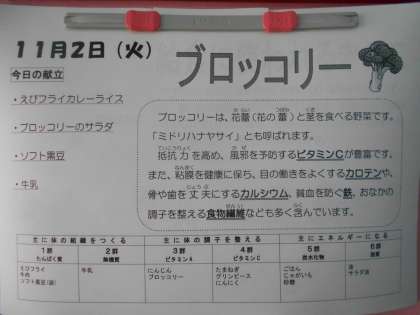 11月2日（火）
ブロッコリー
今日の献立
・えびフライカレーライス
・ブロッコリーのサラダ
・ソフト黒豆
・牛乳
ブロッコリーは、花蕾（花の蕾）と茎を食べる野菜です。
「ミドリハナヤサイ」とも呼ばれます。
抵抗力を高め、風邪を予防するビタミンCが豊富です。
また、粘膜を健康に保ち、目の働きをよくするカロテンや、
骨や歯を丈夫にするカルシウム、貧血を防ぐ鉄、おなかの
調子を整える食物繊維なども多く含んでいます。
主に体の組織をつくる 主に体の調子を整える 主にエネルギーになる
1群 2群 3群 4群 5群 6群
たんぱく質 無機質 ビタミンA ビタミンC 炭水化物 脂質
えびフライ 牛乳 にんじん たまねぎ ごはん 油
牛肉 ブロッコリー グリンピース じゃがいも サラダ油
ソフト黒豆 にんにく 砂糖